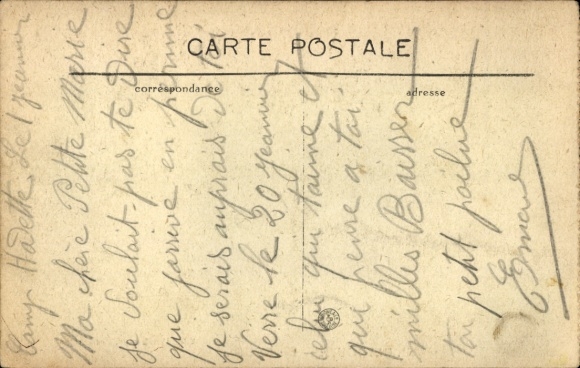 CARTE POSTALE
correspondance
adresse
Camp Le 1 jeanvier
Ma chère Petite Marie
je voulait pas te Dire
que j'arrive en permie
je serais auprais de toi
Verre le 20 jeanvier
celui qui t'aime et
qui pense a toi
milles Baisser
ton petit poilue